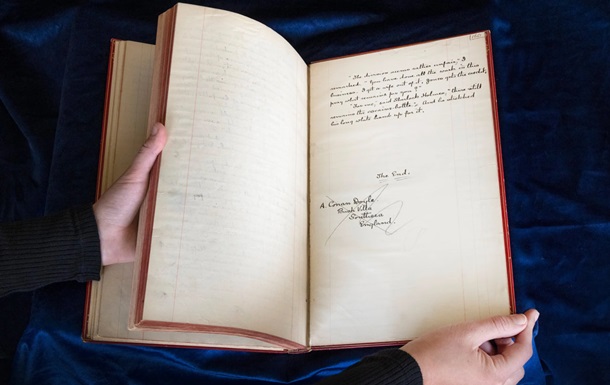 "The division seems rather unfair," I
remarked. "You have done all the work in this
business. I get a wife out of it, Jones gets the credit,
pray what remains for you?"
"For me," said Sherlock Holmes, "there still
remains the cocaine bottle." And he stretched
his long white hand up for it.
The End.
A. Conan Doyle
Bush Villa
Southsea
England.